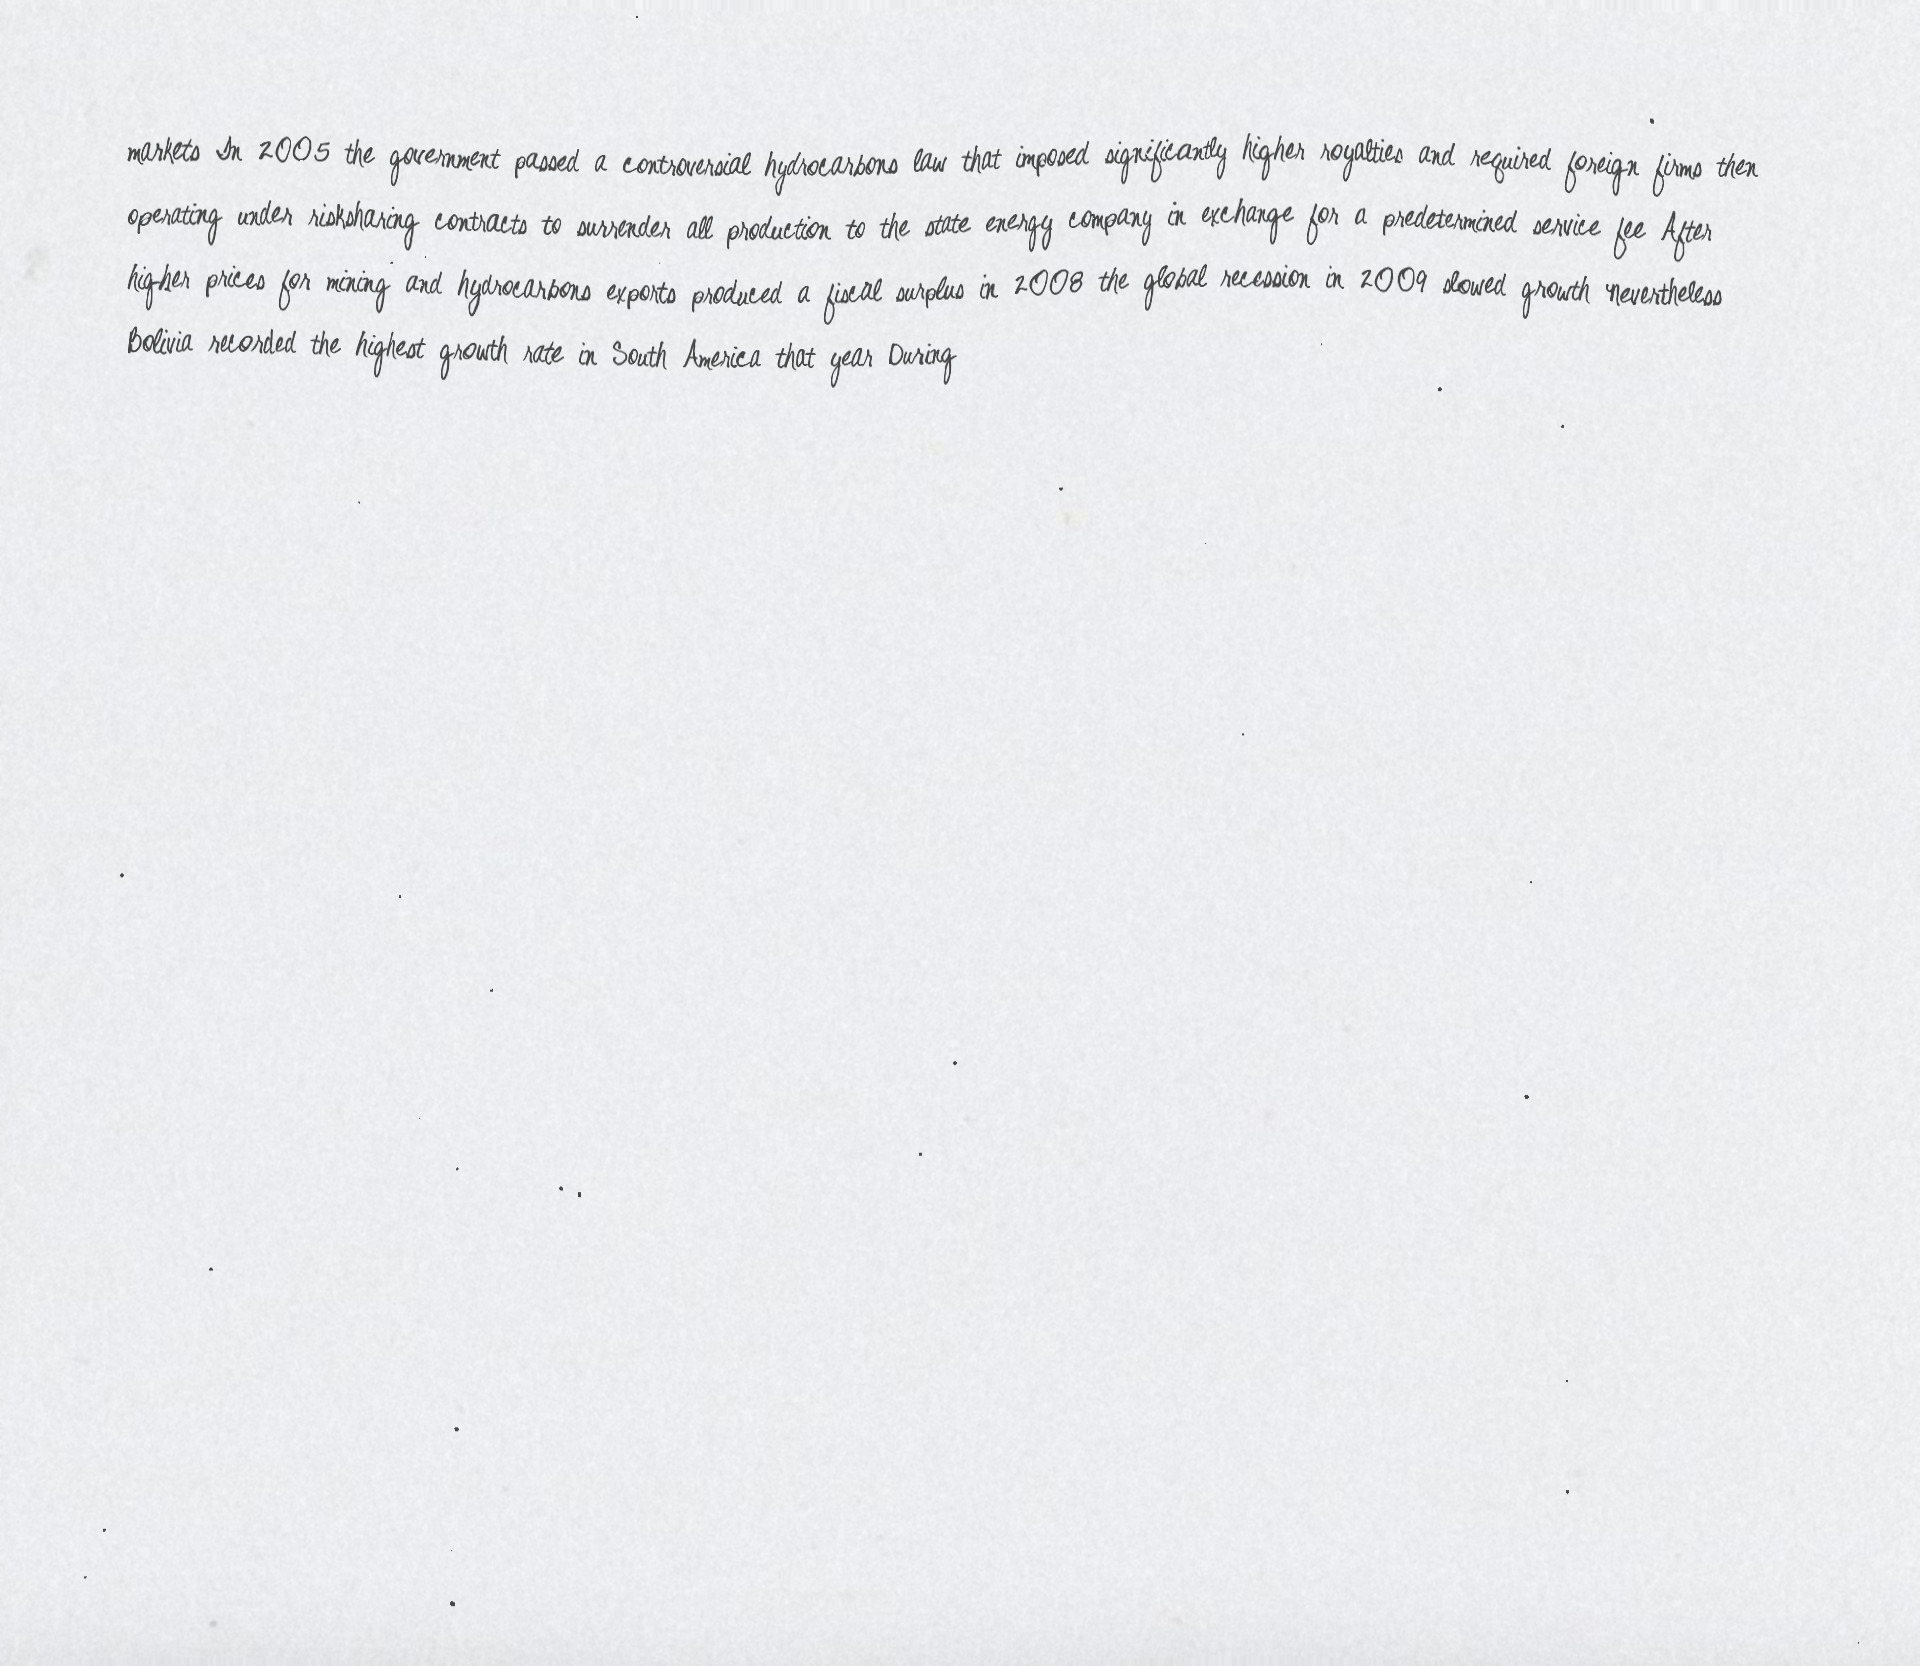 markets In 2005 the government passed a controversial hydrocarbons law that imposed significantly higher royalties and required foreign firms then
operating under risksharing contracts to surrender all production to the state energy company in exchange for a predetermined service fee After
higher prices for mining and hydrocarbons exports produced a fiscal surplus in 2008 the global recession in 2009 slowed growth nevertheless
Bolivia recorded the highest growth rate in South America that year During